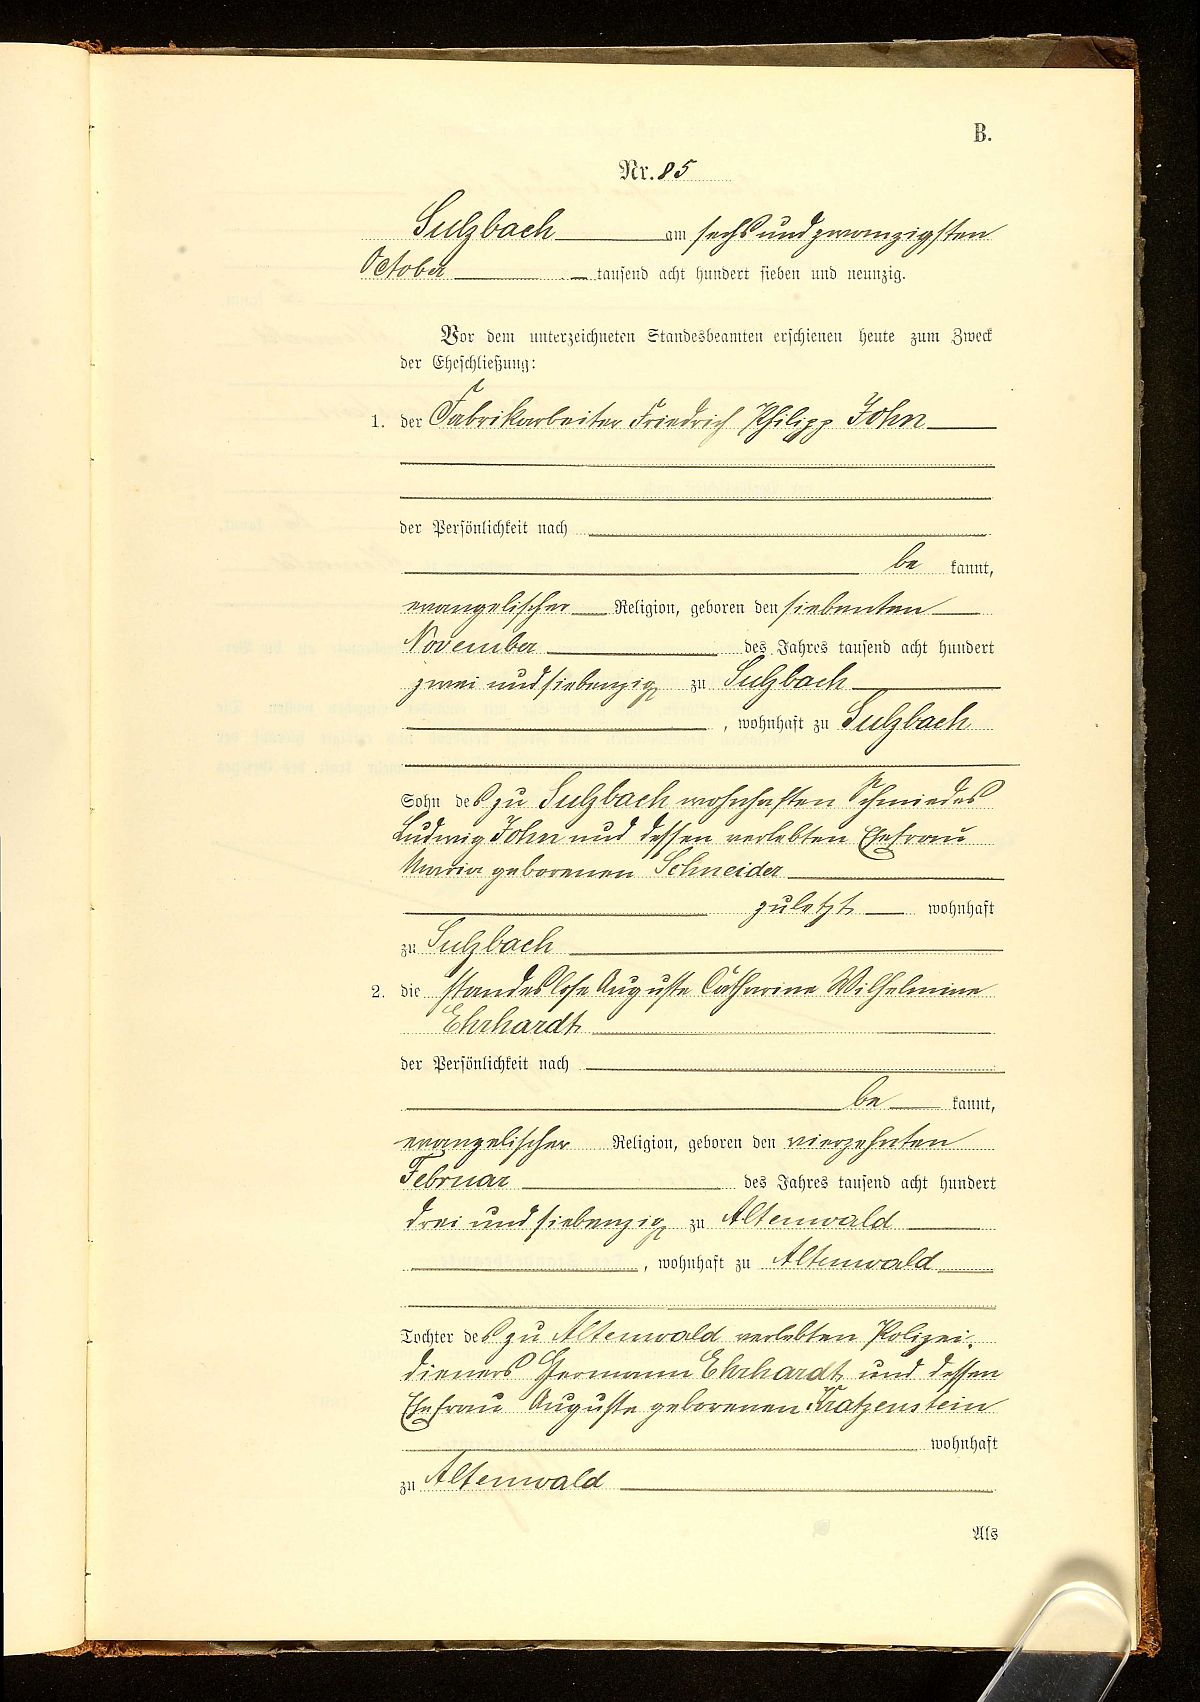 B.
Nr. 85
Sulzbach am sechs und zwanzigsten
October tausend acht hundert sieben und neunzig.
Vor dem unterzeichneten Standesbeamten erschienen heute zum Zweck
der Eheschließung:
1. der Fabrikarbeiter Friedrich Philipp John
der Persönlichkeit nach
be kannt,
evangelischer Religion, geboren den siebenten
November des Jahres tausend acht hundert
zwei und siebenzig zu Sulzbach
, wohnhaft zu Sulzbach
Sohn des zu Sulzbach wohnhaften Schmiedes
Ludwig John und dessen verlebten Ehefrau
Maria geborenen Schneider
zuletzt wohnhaft
zu Sulzbach
2. die standeslose Auguste Catharine Wilhelmine
Ehrhardt
der Persönlichkeit nach
be kannt,
evangelischer Religion, geboren den vierzehnten
Februar des Jahres tausend acht hundert
drei und siebenzig zu Altenwald
, wohnhaft zu Altenwald
Tochter des zu Altenwald verlebten Polizei-
dieners Hermann Ehrhardt und dessen
Ehefrau Auguste geborenen Kratzenstein
wohnhaft
zu Altenwald
Als